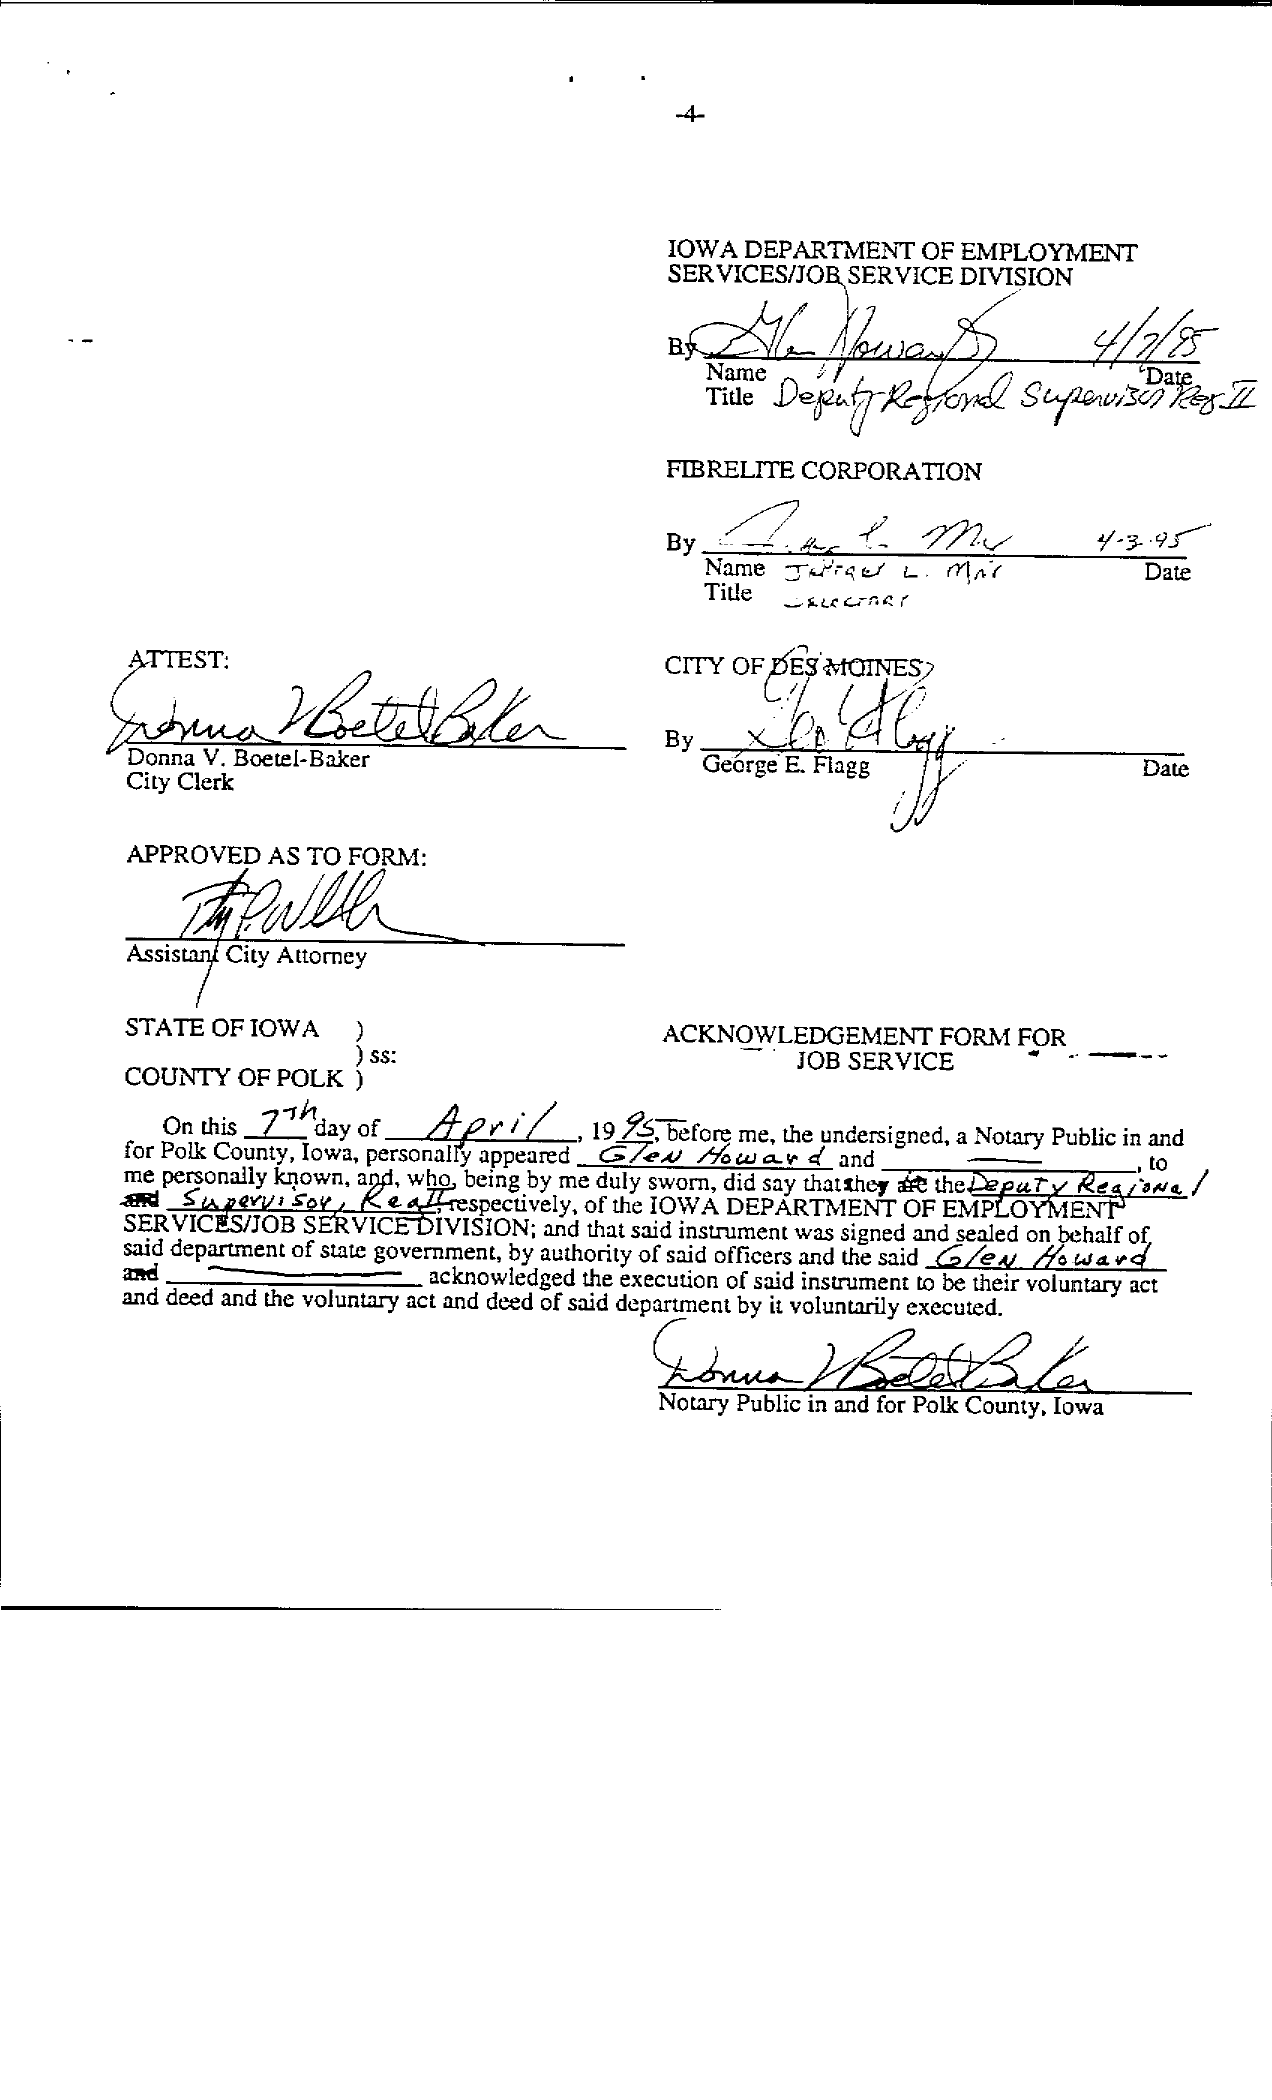 -4-
IOWA DEPARTMENT OF EMPLOYMENT
SERVICES/JOB SERVICE DIVISION
By Glen Howard 4/7/95
Name Date
Title Deputy Regional Supervisor Reg II
FIBRELITE CORPORATION
By 4-3-95
Name L. Date
Title
ATTEST:
Donna V Boetel-Baker
Donna V. Boetel-Baker
City Clerk
CITY OF DES MOINES
By
George E. Flagg Date
APPROVED AS TO FORM:
Assistant City Attorney
STATE OF IOWA )
) ss:
COUNTY OF POLK )
ACKNOWLEDGEMENT FORM FOR
JOB SERVICE
On this 7Th day of April, 1995, before me, the undersigned, a Notary Public in and
for Polk County, Iowa, personally appeared Glen Howard and , to
me personally known, and, who, being by me duly sworn, did say that they are the Deputy Regional
and Supervisor, Reg II, respectively, of the IOWA DEPARTMENT OF EMPLOYMENT
SERVICES/JOB SERVICE DIVISION; and that said instrument was signed and sealed on behalf of
said department of state government, by authority of said officers and the said Glen Howard
and acknowledged the execution of said instrument to be their voluntary act
and deed and the voluntary act and deed of said department by it voluntarily executed.
Donna V Boetel-Baker
Notary Public in and for Polk County, Iowa